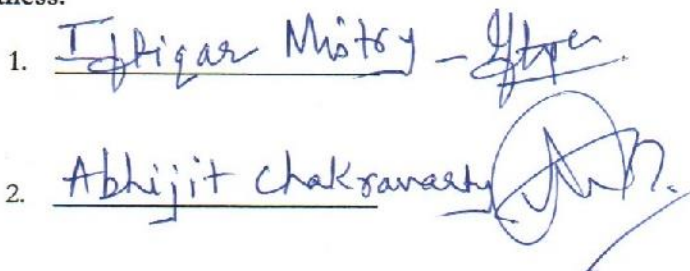 tness:
1. Iftiqar Mistry -
2. Abhijit Chakravarty